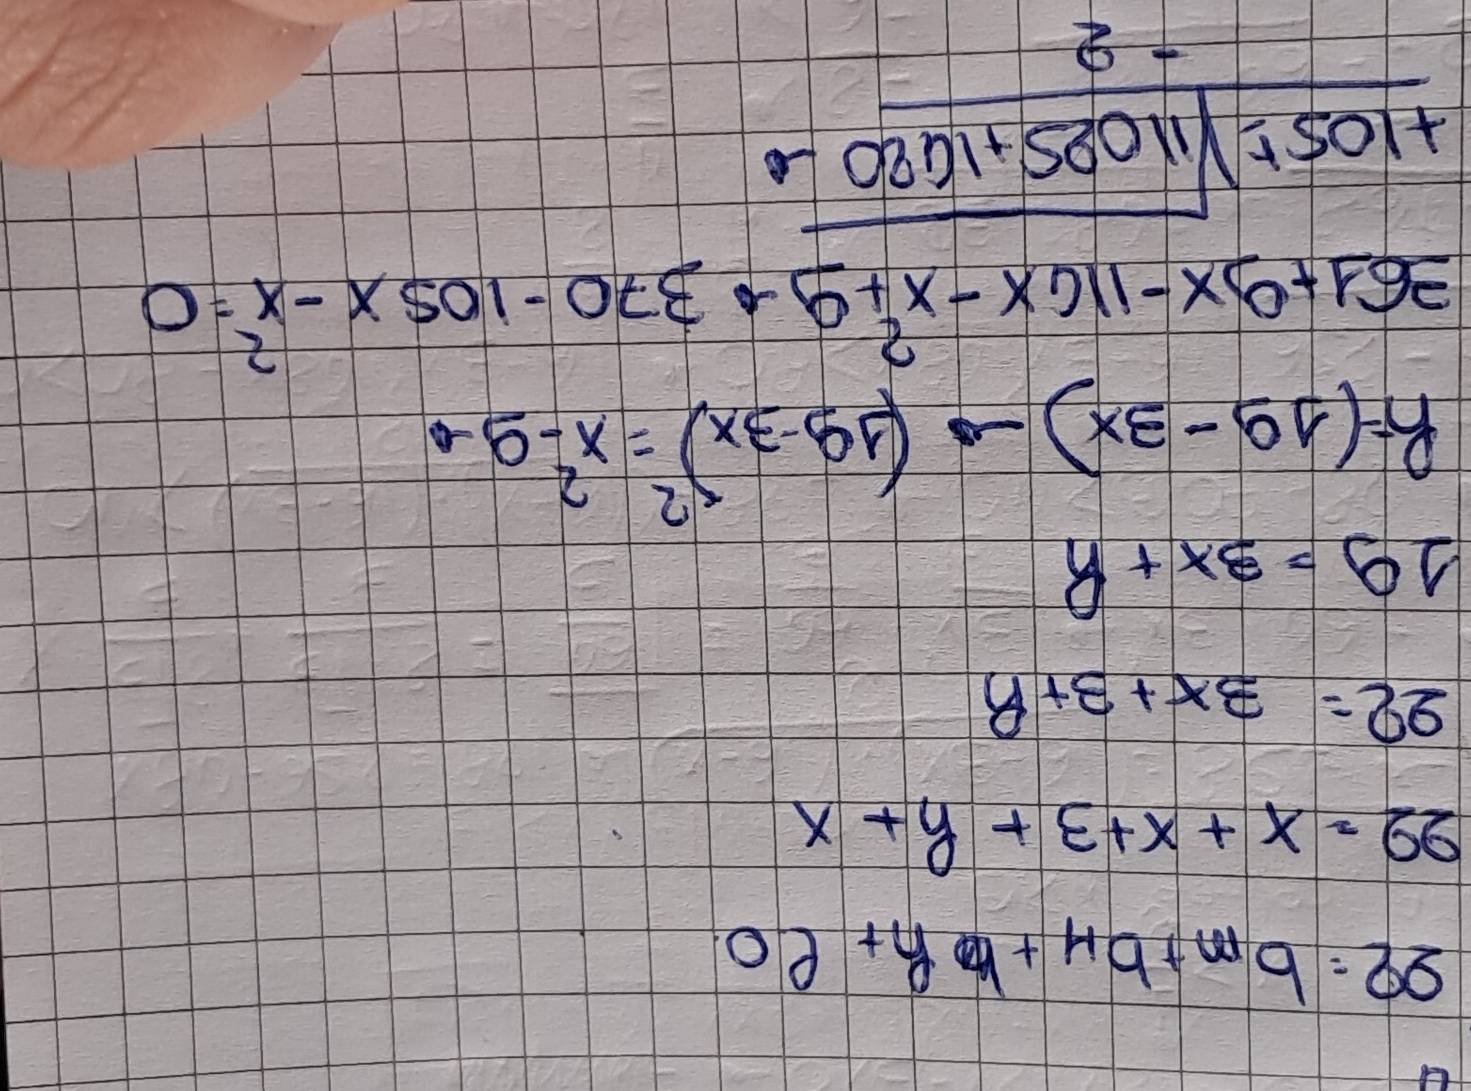 22 = bm + bM + h + lo
22 = x + x+3 + h + x
22 = 3x + 3 + h
19 = 3x + h
h=(19 - 3x) → (19-3x)² = x²-9 →
361+9x - 114x - x²+9 → 370 - 105x - x² = 0
+105± √11025+1420 →
- 2